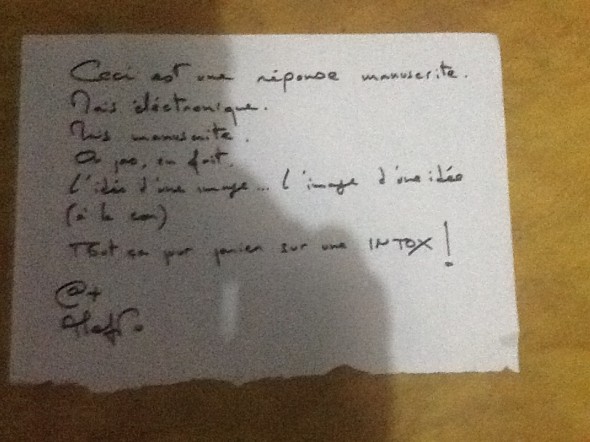 Ceci est une réponse manuscrite.
Mais éléctronique.
Mais manuscrite.
Ou pas, en fait.
L'idée d'une image... L'image d'une idée
(à la con)
Tout ça pour sur une INTOX !
@+